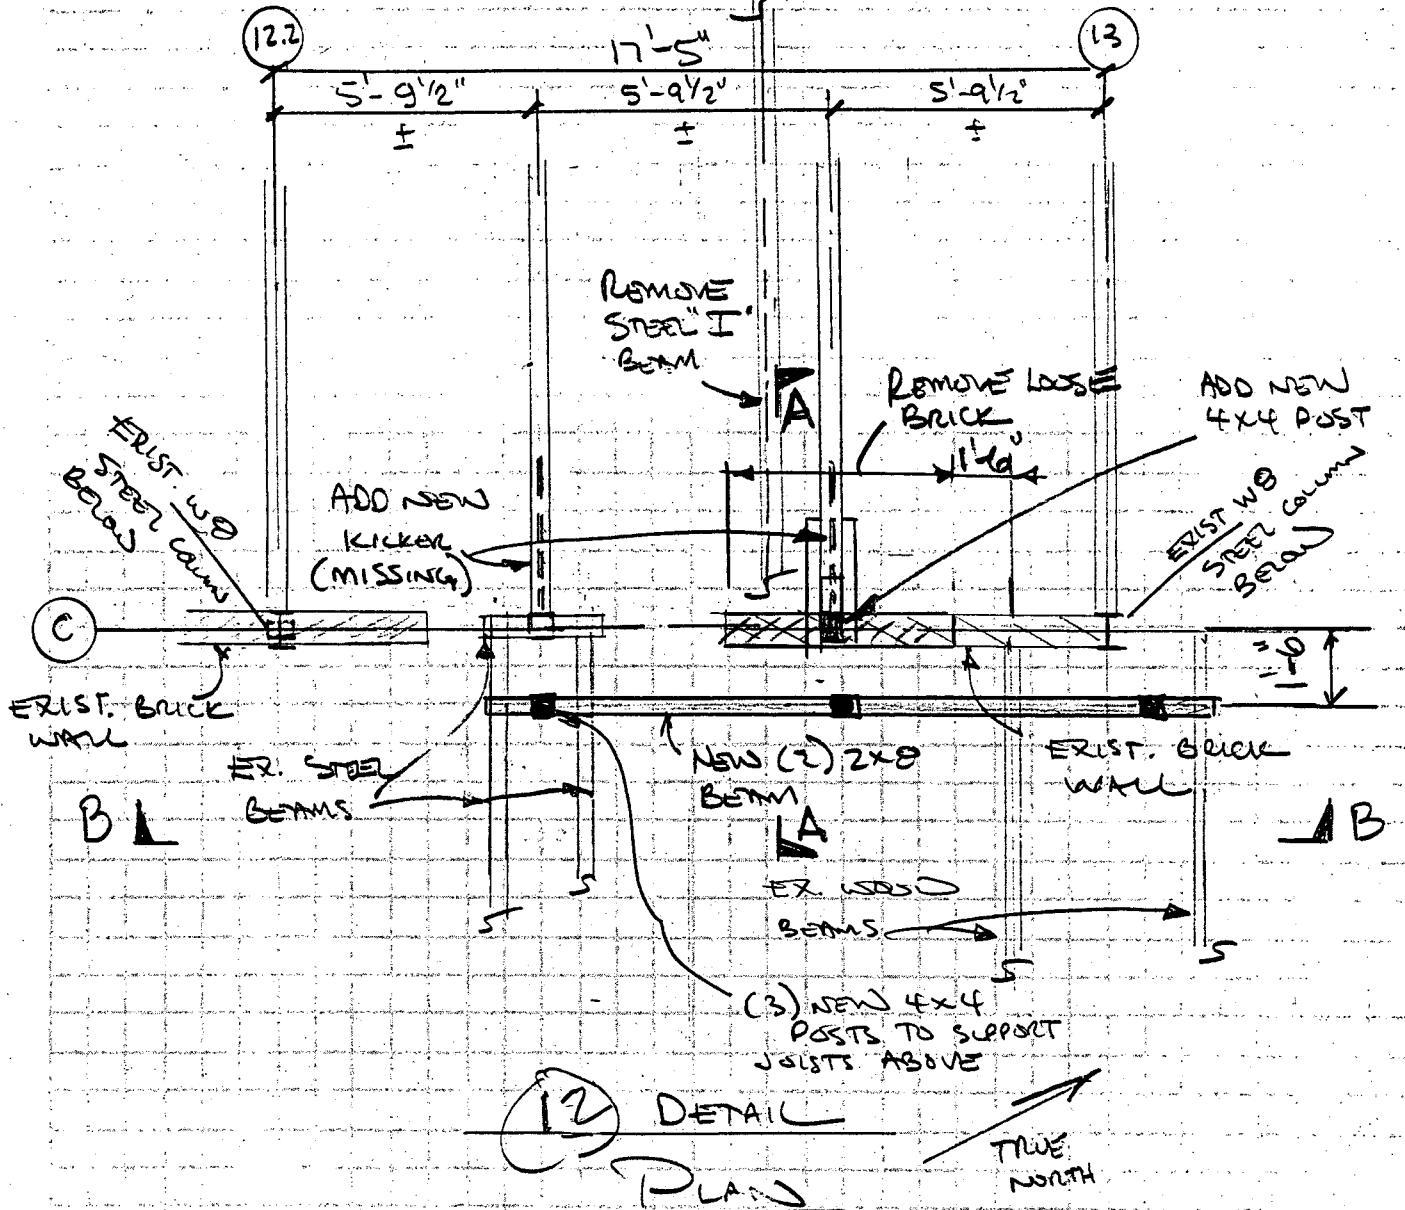 12.2
13
17'-5"
5'-9 1/2"
±
5'-9 1/2"
±
5'-9 1/2"
±
REMOVE
STEEL "I"
BEAM
A
REMOVE LOOSE
BRICK
ADD NEW
4X4 POST
EXIST. W8
STEEL COLUMN
BELOW
ADD NEW
KICKER
(MISSING)
EXIST W8
STEEL COLUMN
BELOW
C
EXIST. BRICK
WALL
EX. STEEL
BEAMS
NEW (2) 2X8
BEAM
EXIST. BRICK
WALL
B
A
B
EX. WOOD
BEAMS
(3) NEW 4X4
POSTS TO SUPPORT
JOISTS ABOVE
12 DETAIL
PLAN
TRUE
NORTH